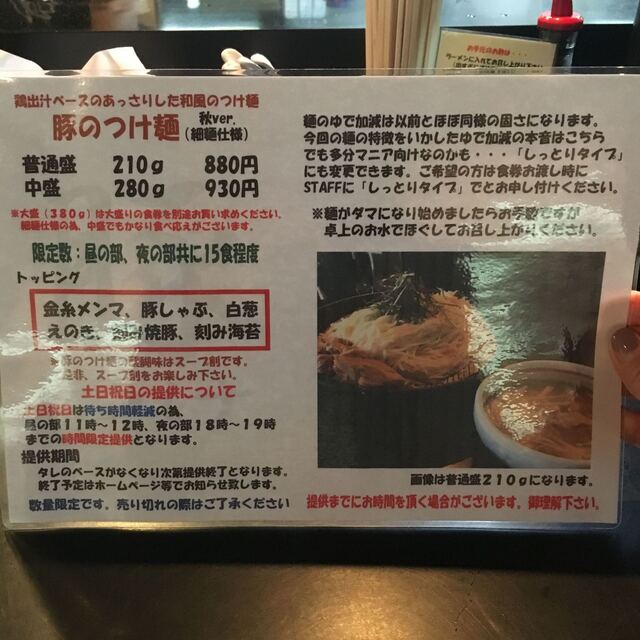 お手元のお酢は・・・
ラーメンに入れてお召し上がり下さい
鶏出汁ベースのあっさりした和風のつけ麺
豚のつけ麺 秋ver.(細麺仕様)
普通盛 210g 880円
中盛 280g 930円
※大盛(380g)は大盛りの食券を別途お買い求めください。
細麺仕様の為、中盛でもかなり食べ応えがございます。
限定数:昼の部、夜の部共に15食程度
トッピング
金糸メンマ、豚しゃぶ、白葱
えのき、刻み焼豚、刻み海苔
※豚のつけ麺の醍醐味はスープ割です。
是非、スープ割をお楽しみ下さい。
土日祝日の提供について
土日祝日は待ち時間軽減の為、
昼の部11時~12時、夜の部18時~19時
までの時間限定提供となります。
提供期間
タレのベースがなくなり次第提供終了となります。
終了予定はホームページ等でお知らせ致します。
数量限定です。売り切れの際はご了承ください
麺のゆで加減は以前とほぼ同様の固さになります。
今回の麺の特徴をいかしたゆで加減の本音はこちら
でも多分マニア向けなのかも・・・「しっとりタイプ」
にも変更できます。ご希望の方は食券お渡し時に
STAFFに「しっとりタイプ」でとお申し付けください。
※麺がダマになり始めましたらお手数ですが
卓上のお水でほぐしてお召し上がりください。
画像は普通盛210gになります。
提供までにお時間を頂く場合がございます。御理解下さい。